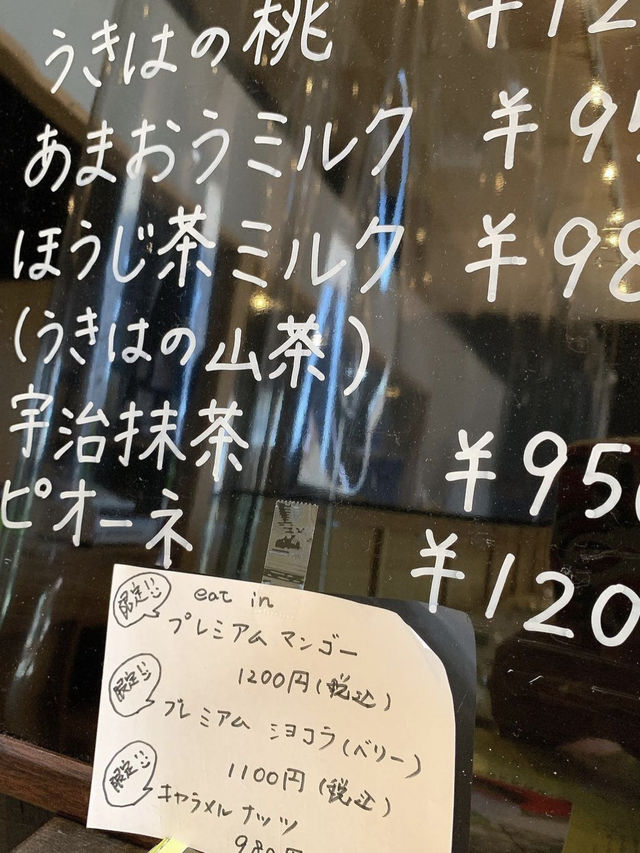 うきはの桃 ¥12
あまおうミルク ¥95
ほうじ茶ミルク ¥98
(うきはの山茶)
宇治抹茶 ¥950
ピオーネ ¥120
限定!! eat in
プレミアム マンゴー
1200円(税込)
限定!! プレミアム ショコラ(ベリー)
1100円(税込)
限定!! キャラメル ナッツ
980円